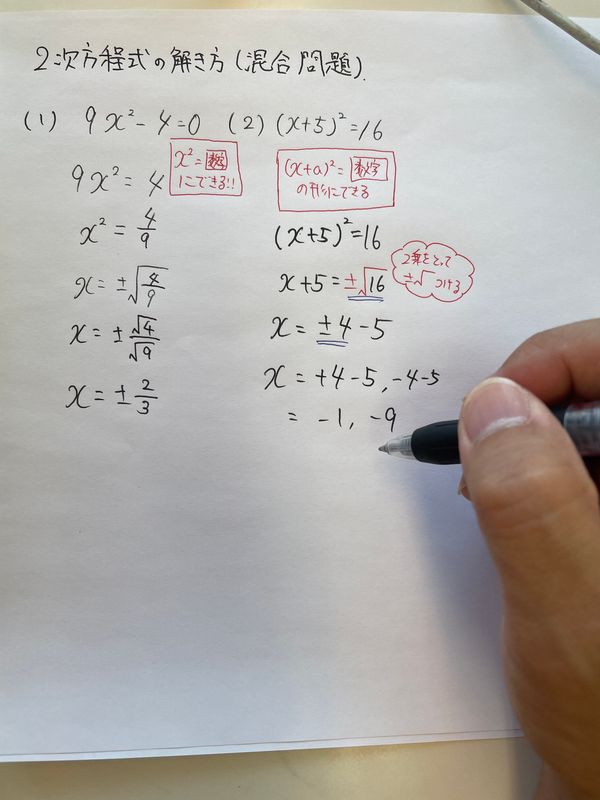 2次方程式の解き方(混合問題).
(1) 9x²-4=0
x²=数字
にできる!!
9x²=4
x²=4/9
x=±√4/9
x=±√4/√9
x=±2/3
(2) (x+5)²=16
(x+a)²=数字
の形にできる
(x+5)²=16
x+5=±√16
2乗をとって
±√つける
x=±4-5
x=+4-5,-4-5
=-1,-9